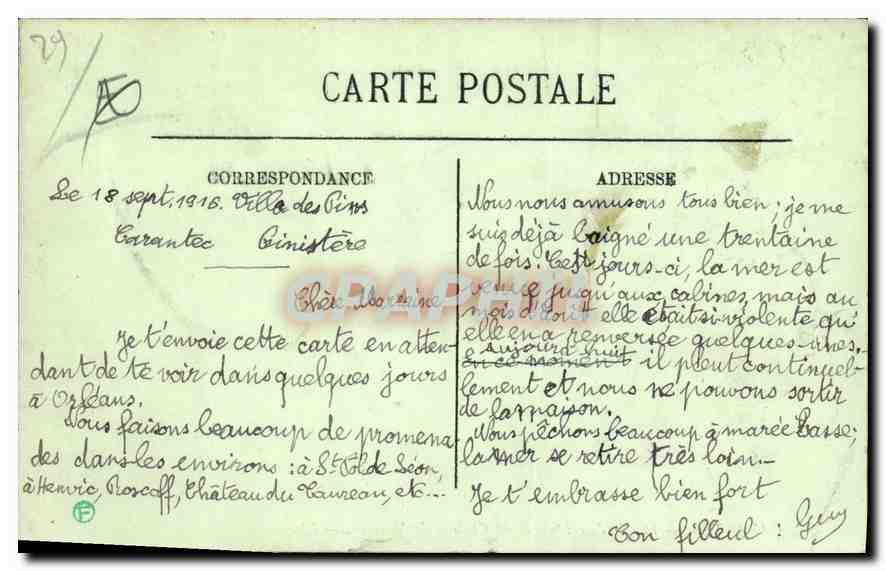 29
CARTE POSTALE
CORRESPONDANCE
Le 18 sept. 1916. Villa des Pins
Carantec Finistère
Chère Marraine
Je t'envoie cette carte en atten-
dant de te voir dans quelques jours
à Orléans.
Nous faisons beaucoup de promena-
des dans les environs : à St Pol de Léon,
à Henvic, Roscoff, Château du Taureau, etc...
F
ADRESSE
Nous nous amusons tous bien ; je me
suis déjà baigné une trentaine
de fois. Ces jours-ci, la mer est
venue jusqu'aux cabines, mais au
mois d'août elle était si violente qu'
elle en a renversée quelques-unes.
aujourd'huit
en ce moment il pleut continuel-
lement et nous ne pouvons sortir
de la maison.
Nous pêchons beaucoup à marée basse;
la mer se retire très loin.
Je t'embrasse bien fort
Ton filleul : Guy